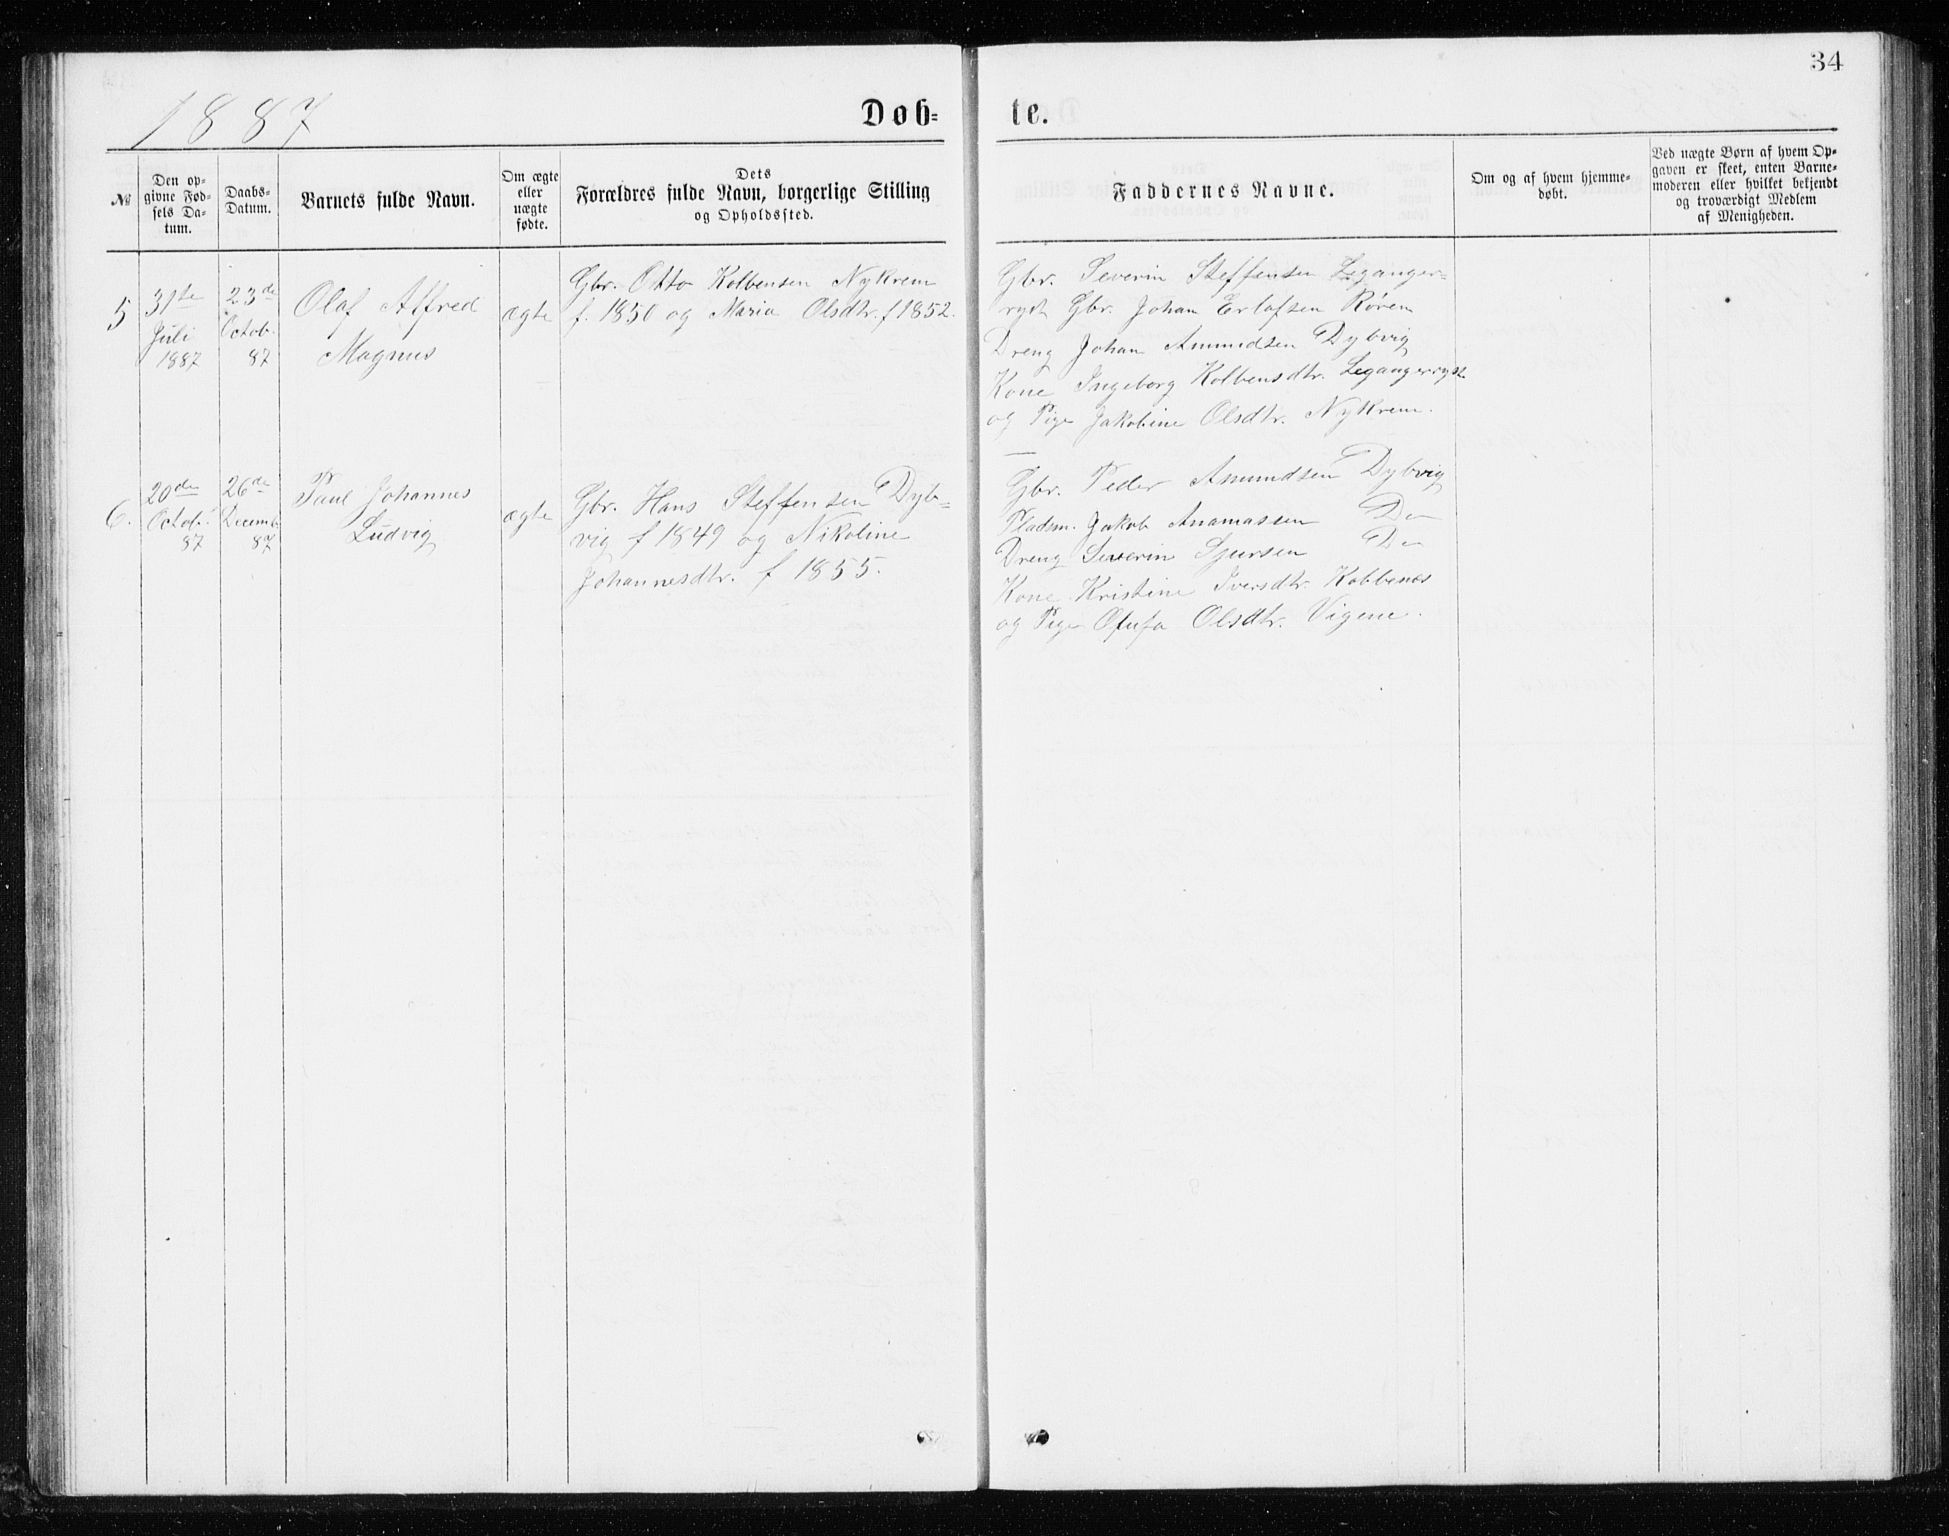 34
1887
Døb=
te.
№
Den op=
givne Fød=
sels Da=
tum.
Daabs=
Datum.
Barnets fulde Navn.
Om ægte
eller
uægte
fødte.
Dets
Forældres fulde Navn, borgerlige Stilling
og Opholdssted.
Faddernes Navne.
Om og af hvem hjemme=
døbt.
Ved uægte Børn af hvem Op=
gaven er skeet, enten Barne=
moderen eller hvilket bekjendt
og troværdigt Medlem
af Menigheden.
5
31te
Juli
1887
23de
Octob.
87
Olaf Alfred
Magnus
ægte
Gbr. Otto Kolbensen Nykrem
f. 1850 og Maria Olsdtr. f 1852.
Gbr. Severin Steffensen Leganger=
rydt Gbr. Johan Erlofsen Røren
Dreng Johan Amundsen Dybvig
Kone Ingeborg Kolbensdtr. Legangerrydt
og Pige Jakobine Olsdtr. Nykrem.
6.
20de
Octob.
87
26de
Decemb.
87
Paul Johannes
Ludvig
ægte
Gbr. Hans Steffensen Dyb=
vig f 1849 og Nikoline
Johannesdtr. f 1855.
Gbr. Peder Amundsen Dybvig
Pladsm. Jakob Anamassen Do
Dreng Severin Sjursen Do
Kone Kristine Iversdtr. Kobbenes
og Pige Olufa Olsdtr. Vigene.